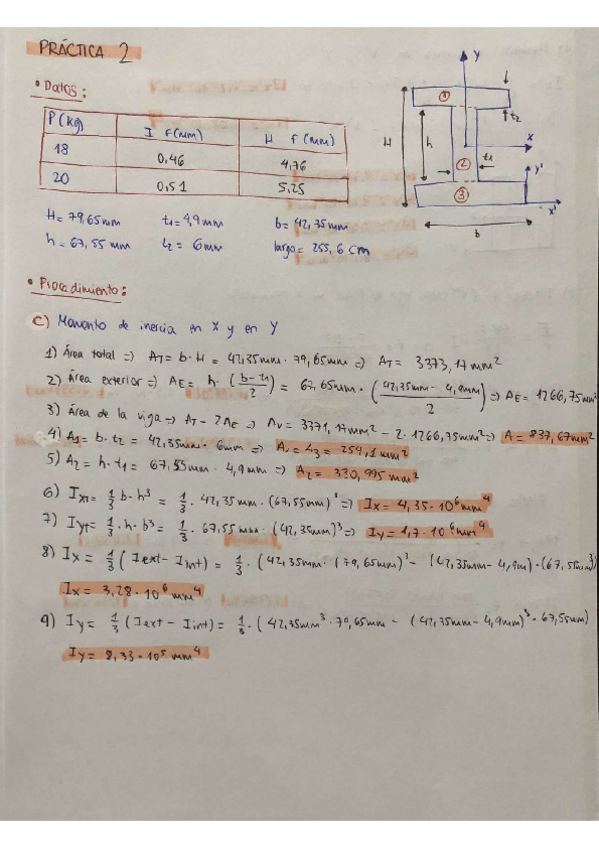 PRÁCTICA 2
• Datos:
P (Kg) I f(mm) H f(mm)
18 0,46 4,76
20 0,51 5,25
H = 79,65mm t1 = 4,9mm b = 42,35mm
h = 67,55 mm t2 = 6mm largo = 255,6 cm
Y
① t2
H h x
② t1 y'
③ x'
b
• Procedimiento:
C) Momento de inercia en X y en Y
1) Área total => AT = b · H = 42,35mm · 79,65mm => AT = 3373,17 mm²
2) Área exterior => AE = h · (b - t1 / 2) = 67,65mm · (42,35mm - 4,9mm / 2) => AE = 1266,75mm²
3) Área de la viga => AT - 2AE => AV = 3371,17mm² - 2 · 1266,75mm² => A = 837,67mm²
4) A1 = b · t2 = 42,35mm · 6mm => A1 = A3 = 254,1mm²
5) A2 = h · t1 = 67,55mm · 4,9mm => A2 = 330,995mm²
6) IxT = 1/3 b · h³ = 1/3 · 42,35 mm · (67,55mm)³ => Ix = 4,35 · 10⁶ mm⁴
7) IyT = 1/3 · h · b³ = 1/3 · 67,55 mm · (42,35mm)³ => Iy = 1,7 · 10⁶ mm⁴
8) Ix = 1/3 (Iext - Iint) = 1/3 · (42,35mm · (79,65mm)³ - (42,35mm - 4,9m) · (67,55mm)³)
Ix = 3,28 · 10⁶ mm⁴
9) Iy = 1/3 (Iext - Iint) = 1/3 · (42,35mm³ · 79,65mm - (42,35mm - 4,9mm)³ · 67,55mm)
Iy = 8,33 · 10⁵ mm⁴